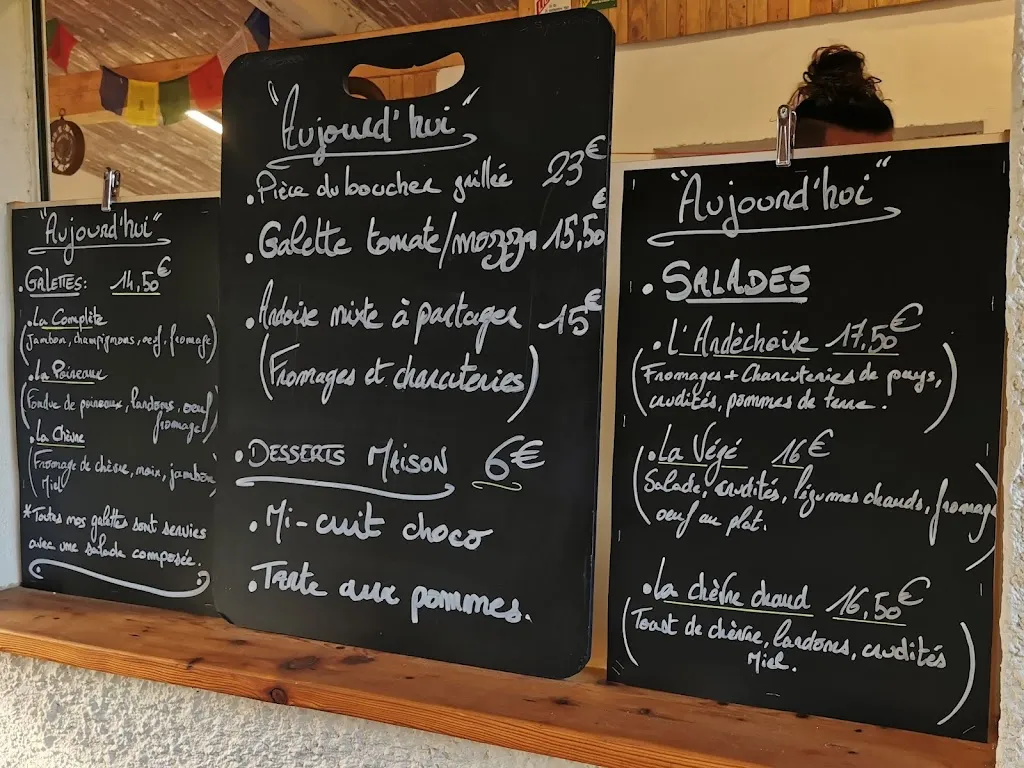 "Aujourd'hui"
. GALETTES: 14,50€
. La Complète
(Jambon, champignons, oeuf, fromage)
. La Poireaux
(Fondue de poireaux, lardons, oeuf
fromage)
. La Chèvre
(Fromage de chèvre, noix, jambon
Miel
*Toutes nos galettes sont servies
avec une salade composée.
"Aujourd'hui"
. Pièce du boucher grillée 23€
. Galette tomate/mozza 15,50€
. Ardoise mixte à partager 15€
(Fromages et charcuteries)
. DESSERTS MAISON 6€
. Mi-cuit choco
. Tarte aux pommes.
"Aujourd'hui"
. SALADES
. L'Ardèchoise 17,50€
(Fromages + Charcuteries de pays,
crudités, pommes de terre.)
. La Végé 16€
(Salade, crudités, légumes chauds, fromage
oeuf au plat.)
. La chèvre chaud 16,50€
(Toast de chèvre, lardons, crudités
Miel.)